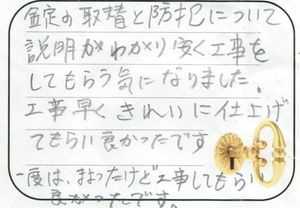 錠の取替と防犯について
説明がわかり安く工事を
してもらう気になりました。
工事早くきれいに仕上げ
てもらい良かったです
一度は、まよったけど工事してもらい
良かったです。